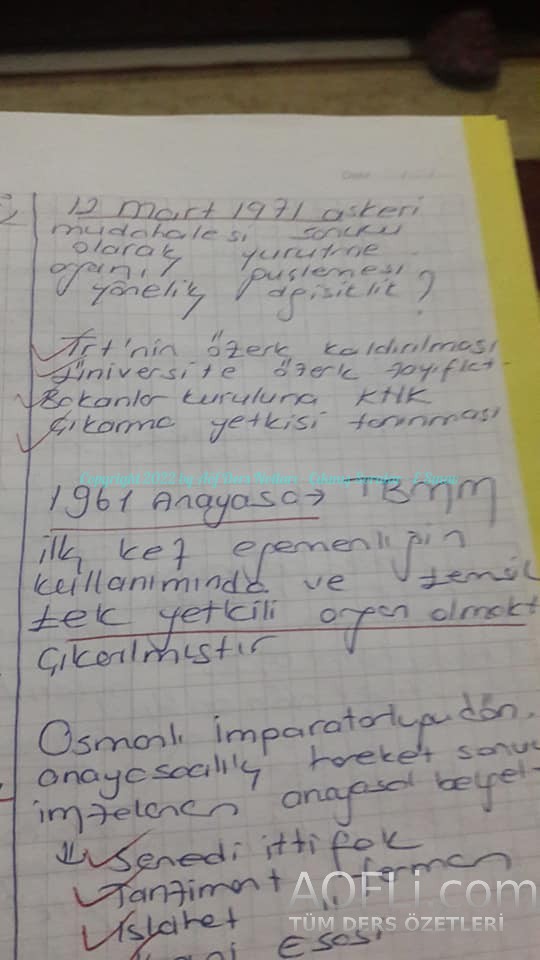 12 Mart 1971 askeri
müdahalesi sonucu
olarak yürütme
organı güçlemesi
yönelik değişiklik?
Trt'nin özerk kaldırılması
Üniversite özerk zayıflat.
Bakanlar kuruluna KHK
Çıkarma yetkisi tanınması
Copyright 2022 by
1961 Anayasa → TBMM
ilk kez egemenliğin
kullanımında ve temsil
tek yetkili organ olmakt
Çıkarılmıştır
Osmanlı imparatorluğu dön.
anayasacılık hareket sonuc
imzalanan anayasal belgel
Senedi ittifak
Tanzimat ferman
Islahat "
Esasi
AOFLi com
TÜM DERS ÖZETLERİ